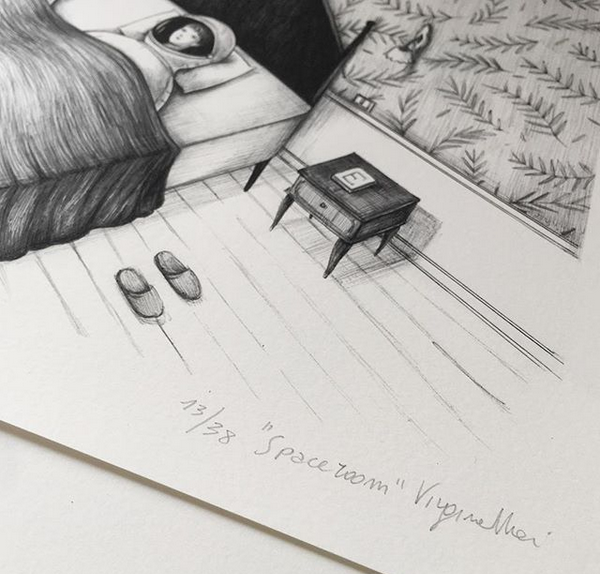 13/38 "Spaceroom" Virginia Mori